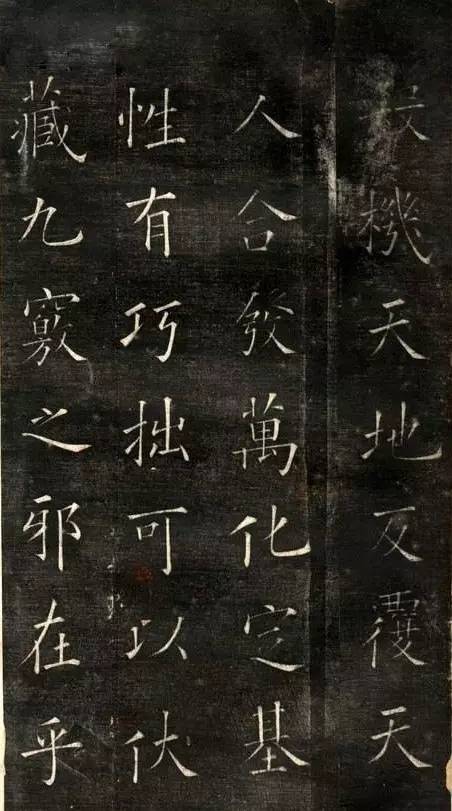 殺機天地反覆天
人合發萬化定基
性有巧拙可以伏
藏九竅之邪在乎